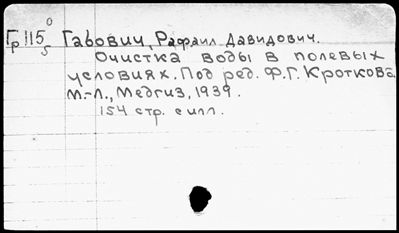 Гр 115 0/5 Габович, Рафаил Давидович.
Очистка воды в полевых
условиях. Под ред. Ф.Г. Кроткова.
М.-Л., Медгиз, 1939.
154 стр. с илл.